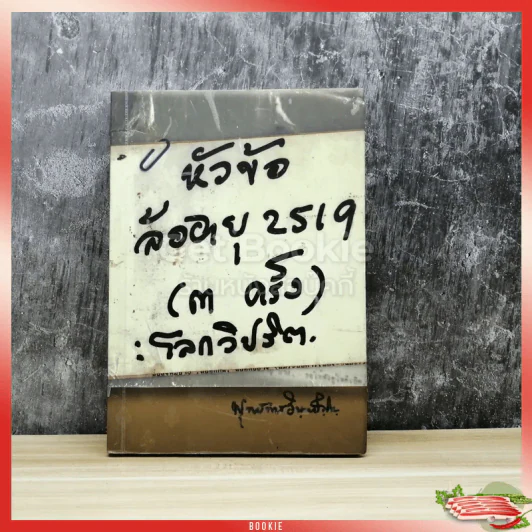 หัวข้อ
ล้ออายุ 2519
(๓ ครั้ง)
: โลกวิปริต.
พุทธทาสอินทปัญโญ
Get Bookie
BOOKIE